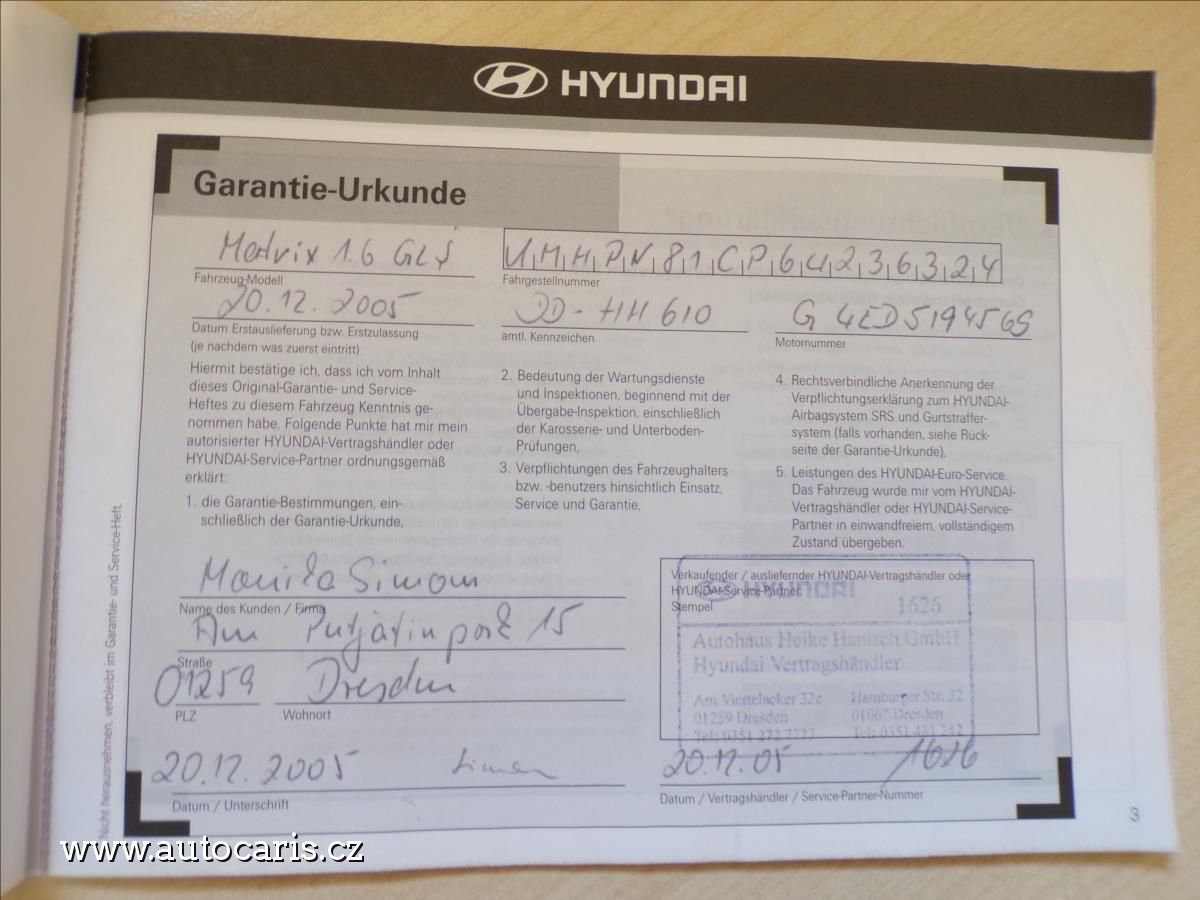 HYUNDAI
Garantie-Urkunde
Matrix 1.6 GLS
Fahrzeug-Modell
KMHPN81CP6U236324
Fahrgestellnummer
20.12.2005
Datum Erstauslieferung bzw. Erstzulassung
(je nachdem was zuerst eintritt)
DD-HH 610
amtl. Kennzeichen
G4ED5194565
Motornummer
Hiermit bestätige ich, dass ich vom Inhalt
dieses Original-Garantie- und Service-
Heftes zu diesem Fahrzeug Kenntnis ge-
nommen habe. Folgende Punkte hat mir mein
autorisierter HYUNDAI-Vertragshändler oder
HYUNDAI-Service-Partner ordnungsgemäß
erklärt:
1. die Garantie-Bestimmungen, ein-
schließlich der Garantie-Urkunde,
2. Bedeutung der Wartungsdienste
und Inspektionen, beginnend mit der
Übergabe-Inspektion, einschließlich
der Karosserie- und Unterboden-
Prüfungen,
3. Verpflichtungen des Fahrzeughalters
bzw. -benutzers hinsichtlich Einsatz,
Service und Garantie,
4. Rechtsverbindliche Anerkennung der
Verpflichtungserklärung zum HYUNDAI-
Airbagsystem SRS und Gurtstraffer-
system (falls vorhanden, siehe Rück-
seite der Garantie-Urkunde).
5. Leistungen des HYUNDAI-Euro-Service.
Das Fahrzeug wurde mir vom HYUNDAI-
Vertragshändler oder HYUNDAI-Service-
Partner in einwandfreiem, vollständigem
Zustand übergeben.
Monika Simon
Name des Kunden / Firma
Am Putjatinpark 15
Straße
01259 Dresden
PLZ Wohnort
20.12.2005 Simon
Datum / Unterschrift
Verkaufender / ausliefernder HYUNDAI-Vertragshändler oder
HYUNDAI-Service-Partner
Stempel
HYUNDAI
1626
Autohaus Heike Hanisch GmbH
Hyundai Vertragshändler
Am Viertelacker 32c Hamburger Str. 32
01259 Dresden 01067 Dresden
Tel: 0351 272 7777 Tel: 0351 481 242
20.12.05 1626
Datum / Vertragshändler / Service-Partner-Nummer
Nicht herausnehmen, verbleibt im Garantie- und Service-Heft.
3
www.autocaris.cz